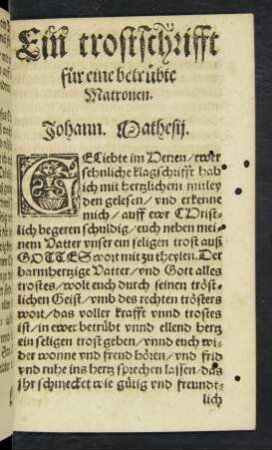 Ein trostschrifft
für eine betrübte
Matronen.
Johann. Mathesij.
GEliebte im Herren / ewer
sehnliche klagschrifft hab
ich mit hertzlichem mitley
den gelesen / vnd erkenne
mich / auff ewr Christ-
lich begeren schuldig / euch neben mei-
nem Vatter vnser ein seligen trost auß
GOTTES wort mit zu theylen. Der
barmhertzige Vatter / vnd Gott alles
trostes / wolt euch durch seinen tröst-
lichen Geist / vmb des rechten trösters
wort / das voller krafft vnnd trostes
ist / in ewer betrübt vnnd ellend hertz
ein seligen trost geben / vnnd euch wi-
der wonne vnd freud hören / vnd frid
vnd ruhe ins hertz sprechen lassen / das
jhr schmecket wie gütig vnd freundt-
lich